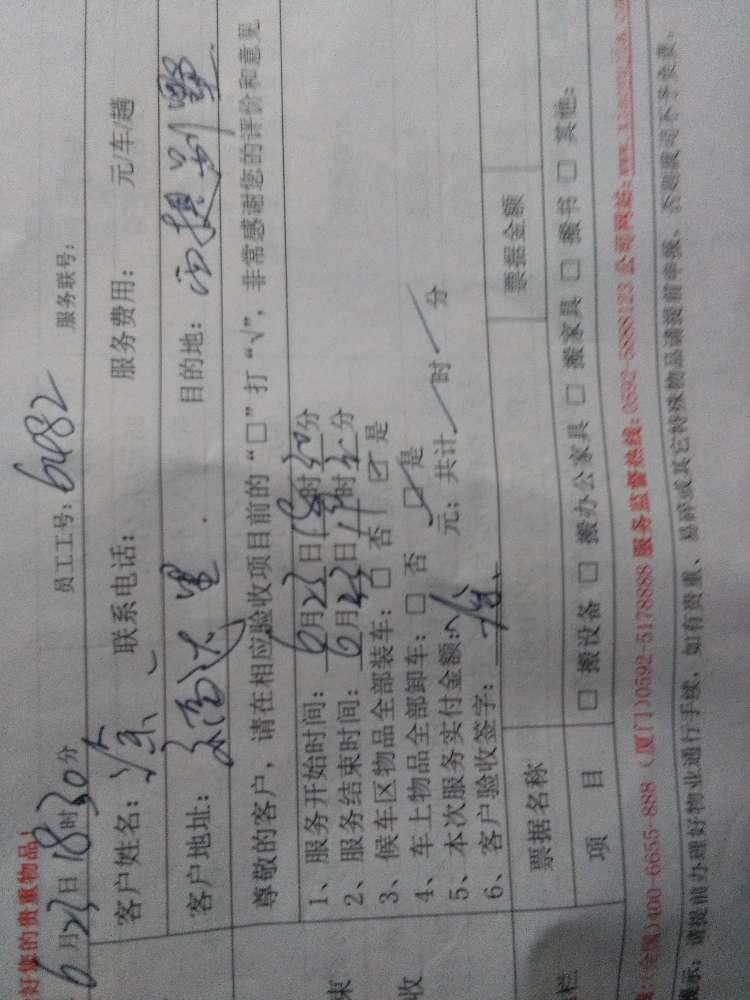 好您的贵重物品!
6月23日18时30分 员工工号: 6482 服务联号:
客户姓名: 联系电话: 服务费用: 元/车/趟
客户地址: 目的地:
尊敬的客户, 请在相应验收项目前的“□”打“√”, 非常感谢您的评价和意见
1、服务开始时间: 6月23日18时30分
2、服务结束时间: 6月23日 时 分
3、候车区物品全部装车: □ 否 ☑ 是
4、车上物品全部卸车: □ 否 ☑ 是
5、本次服务实付金额: 元; 共计 时 分
6、客户验收签字:
票据名称 票据金额
项 目 □ 搬设备 □ 搬办公家具 □ 搬家具 □ 搬书 □ 其他:
束
收
栏
线:(全国)400-6655-888 (厦门)0592-5178888 服务监督热线:0592-5888123 公司网站:
提示: 请提前办理好物业通行手续, 如有贵重、易碎或其它特殊物品请提前申报, 否则搬动不予免费。